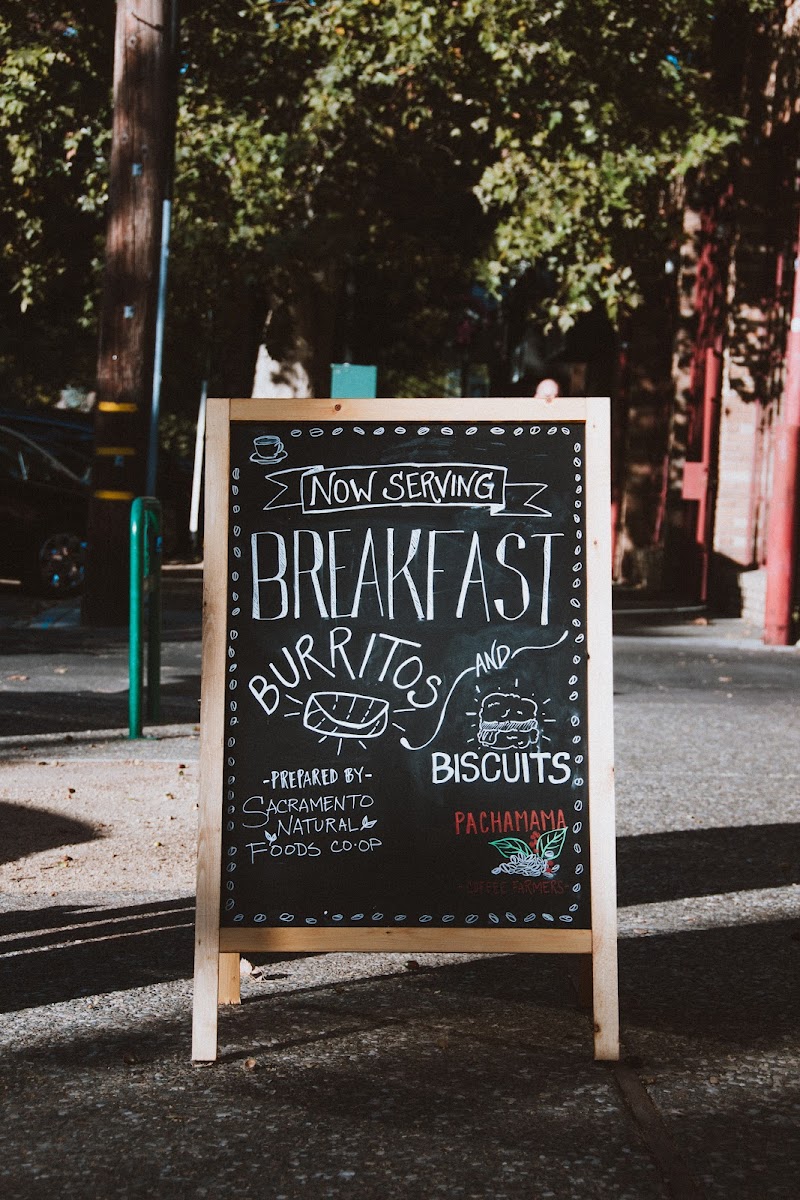 NOW SERVING
BREAKFAST
BURRITOS
AND
BISCUITS
-PREPARED BY-
SACRAMENTO
NATURAL
FOODS CO·OP
PACHAMAMA
-COFFEE FARMERS-